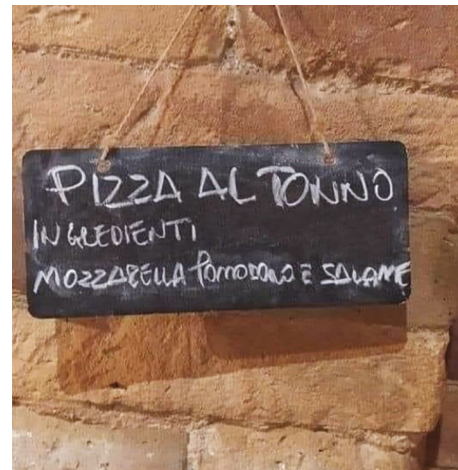 PIZZA AL TONNO
INGREDIENTI
MOZZARELLA POMODORO E SALAME